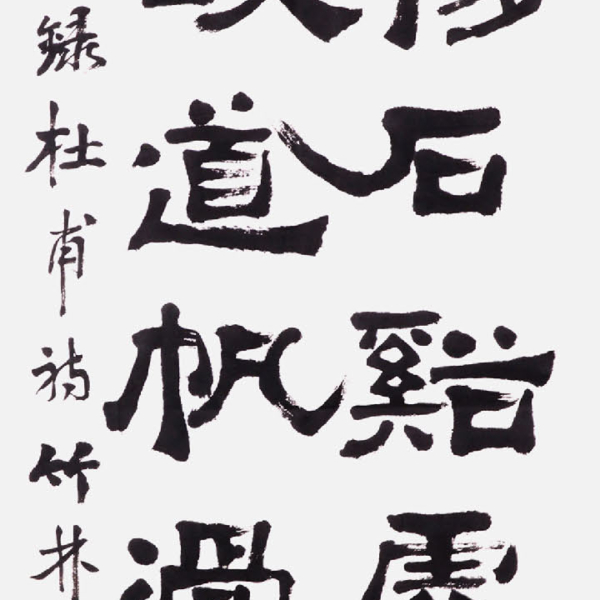 石谿
道帆過
録杜甫詩竹林